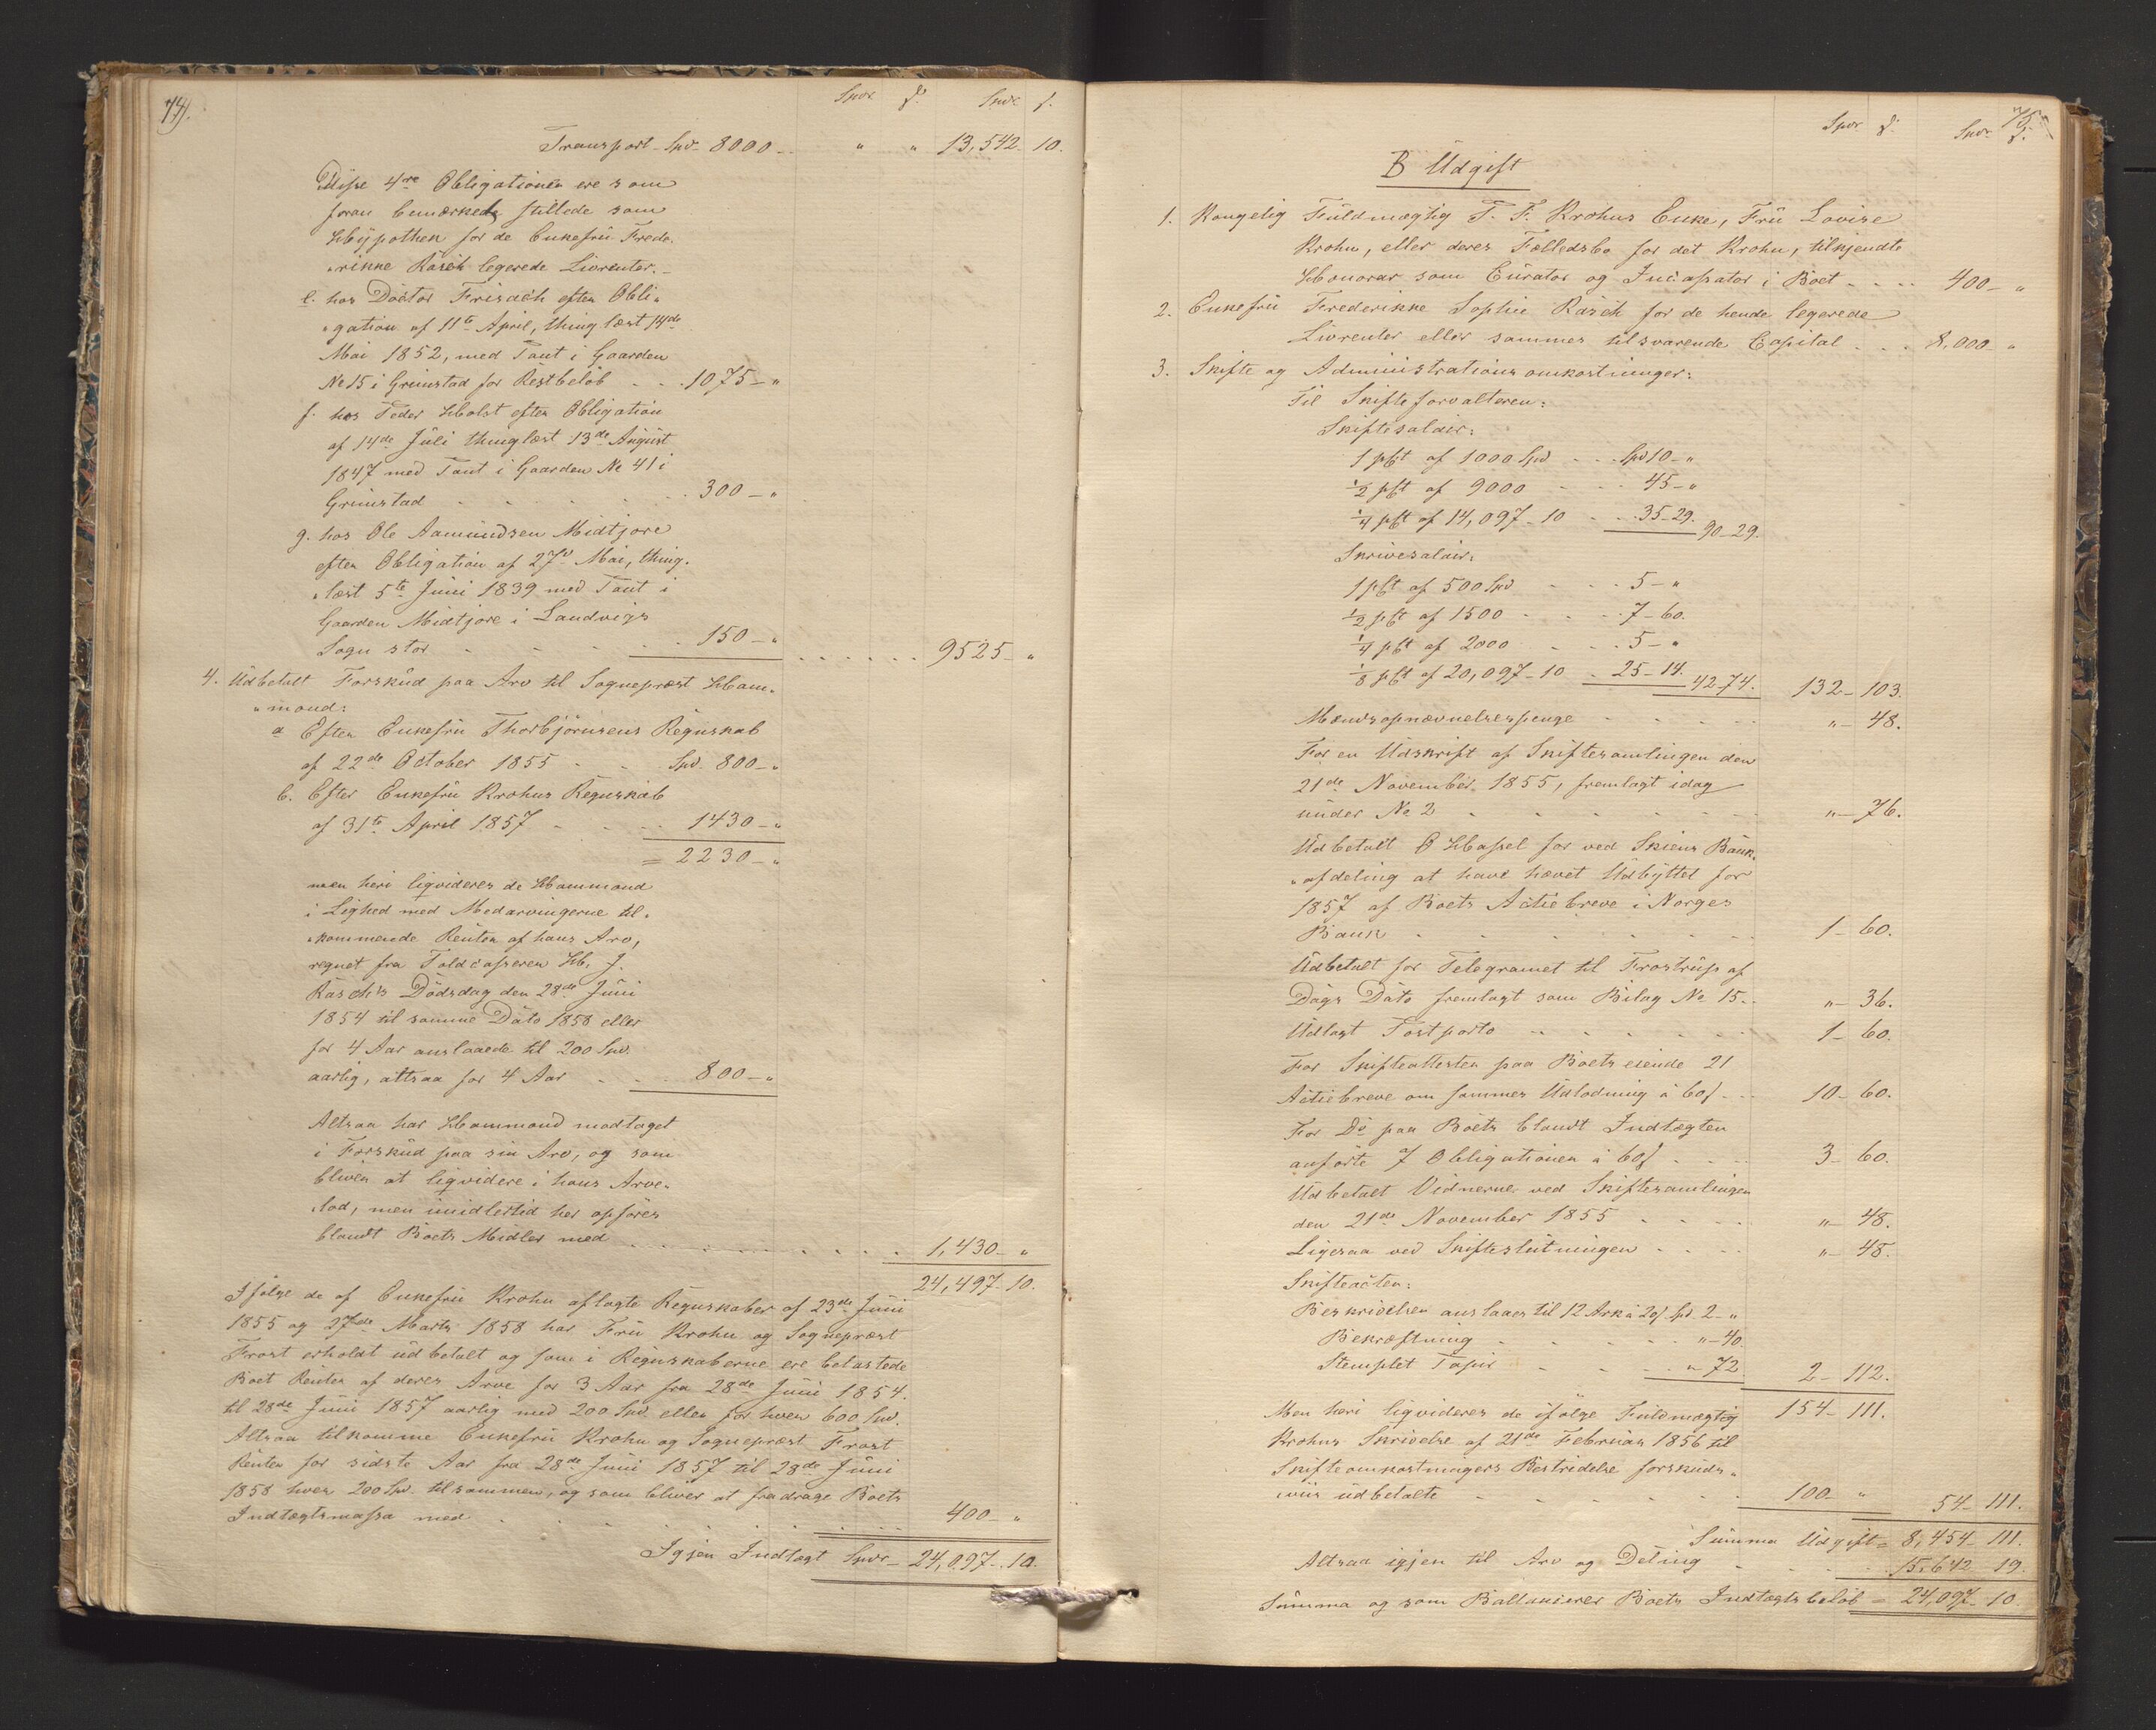 74.
Spd. ſ. Spd. ſ.
Transport Spd. 8000 - " " 13,542. 10.
Disse 4re Obligationer ere som
foran bemærkede stillede som
Hypothek for de Enkefrü Frede-
"rikke Räsch legerede Livrenter. -
e. hos Doctor Frisach efter Obli"
"gation af 11te April, thinglæst 14de
Mai 1852, med Pant i Gaarden
No 15 i Grimstad for Restbeløb . . . 1075 - "
f. hos Peder Holst efter Obligation
af 14de Jüli thinglæst 13de Aügüst
1847 med Pant i Gaarden No 41 i
Grimstad . . . . . 300 - "
g. hos Ole Aamündsen Midtjore
efter Obligation af 27de Mai, thing-
"læst 5te Jüni 1839 med Pant i
Gaarden Midtjore i Landvigs
Sogn stor . . . . 150 - " . . . . . . 9525 - "
4. Üdbetalt Forskud paa Arv til Sognepræst Ham-
"mond:
a Efter Enkefrü Thorbjörnsens Regnskab
af 22de October 1855 . . Spd. 800 - "
b. Efter Enkefrü Krohns Regnskab
af 31te April 1857 . . . . 1430 - "
= 2230 - "
men heri liqvideres de Hammond
i Lighed med Medarvingerne til-
"kommende Renter af hans Arv,
regnet fra Toldcasserer H. J.
Räschs Dödsdag den 28de Jüni
1854 til samme Dato 1858 eller
for 4 Aar anslaaede til 200 Spd.
aarlig, altsaa for 4 Aar . . . 800 - "
Altsaa har Hammond modtaget
i Forsküd paa sin Arv, og som
bliver at liqvidere i hans Arve-
"lod, men imidlertid her opföres
blandt Boets Midler med . . . . . . . . . . 1,430 - "
24,497 - 10.
Ifölge de af Enkefrü Krohn aflagte Regnskaber af 23de Jüni
1855 og 27de Marts 1858 har Frü Krohn og Sognepræst
Frost erholdt üdbetalt og som i Regnskaberne ere belastede
Boet Renter af deres Arve for 3 Aar fra 28de Jüni 1854.
til 28de Jüni 1857 aarlig med 200 Spd. eller for hver 600 Spd.
Altsaa tilkomme Enkefrü Krohn og Sognepræst Frost
Renter for sidste Aar fra 28de Jüni 1857 til 28de Jüni
1858 hver 200 Spd. tilsammen, og som bliver at fradrage Boets
Indtægtsmassa med . . . . . . . . . 400 - "
Igjen Indtægt Spd. - 24,097 - 10.
75.
Spd. ſ. Spd. ſ.
B Üdgift
1. Kongelig Füldmægtig P. F. Krohns Enke, Frü Lovise
Krohn, eller deres Fælledsbo for det Krohn, tilkjendte
Honorar som Cürator og Incassator i Boet . . . . 400 - "
2. Enkefrü Frederikke Sophie Räsch for de hende legerede
Livrenter eller sammes tilsvarende Capital . . . 8,000 - "
3. Skifte og Administrations omkostninger:
Til Skifteforvalteren:
Skiftesalair:
1 pCt af 1000 Spd . . . Spd 10 - "
1/2 pCt af 9000 . . . 45 - "
1/4 pCt af 14,097 - 10 . . 35 - 29. 90 - 29.
Skrivesalair:
1 pCt af 500 Spd . . . 5 - "
1/2 pCt af 1500 . . . . 7 - 60.
1/4 pCt af 2000 . . . 5 - "
1/8 pCt af 20,097 - 10 . 25 - 14. 42 - 74. 132 - 103.
Mændsopnævnelsespenge . . . . . " - 48.
For en Üdskrift af Skiftesamlingen den
21de November 1855, fremlagt idag
ünder No 2 . . . . . . . " - 76.
Üdbetalt O Hassel for ved Skiens Bank-
"afdeling at have hævet Üdbÿttet for
1857 af Boets Actiebreve i Norges
Bank . . . . . . . . 1 - 60.
Üdbetalt for Telegramet til Frostrüp af
Dags Dato fremlagt som Bilag No 15 . . " - 36.
Üdlagt Postporto . . . . . . . 1 - 60.
For Skifteattester paa Boets eiende 21
Actiebreve om sammes Üdlodning à 60 ſ . . . 10 - 60.
For Do paa Boets blandt Indtægten
anförte 7 Obligationer à 60 ſ . . . . 3 - 60.
Üdbetalt Vidnerne ved Skiftesamlingen
den 21de November 1855 . . . . " - 48.
Ligesaa ved Skifteslütningen . . . . " - 48.
Skifteacten:
Beskrivelsen anslaaes til 12 Ark à 20 ſ Spd. 2 - "
Bekræftning . . . . . . " - 40.
Stemplet Papir . . . . " - 72. 2 - 112.
Men heri liqvideres de ifölge Füldmægtig 154 - 111.
Krohns Skrivelse af 21de Februar 1856 til
Skifteomkostningers Bestridelse forsküds-
"viis üdbetalte . . . . . . . 100 - " 54 - 111.
Sümma Üdgift = 8,454 - 111.
Altsaa igjen til Arv og Deling . . . . . 15,642 - 19.
Sümma og som Ballancerer Boets Indtægtsbeløb = 24,097 - 10.